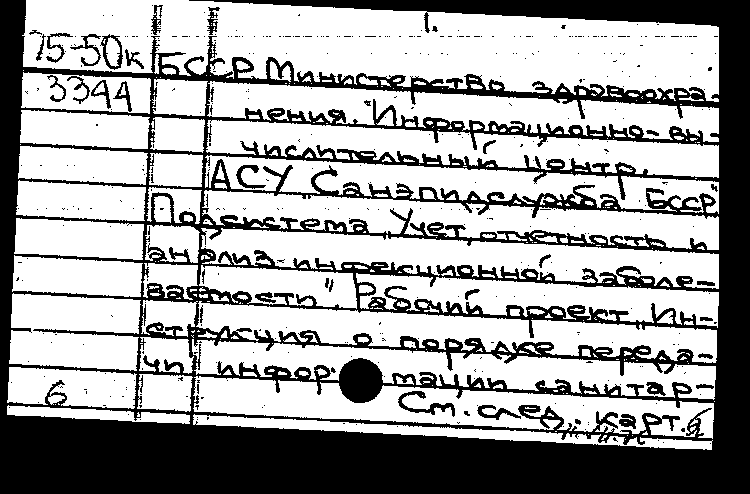 1.
75-50к БССР. Министерство здравоохра-
3344 нения. Информационно-вы-
числительный центр.
АСУ „Санэпидслужба БССР".
Подсистема „Учет, отчетность и
анализ инфекционной заболе-
ваемости". Рабочий проект „Ин-
струкция о порядке переда-
чи информации санитар-
6 См. след. карт.